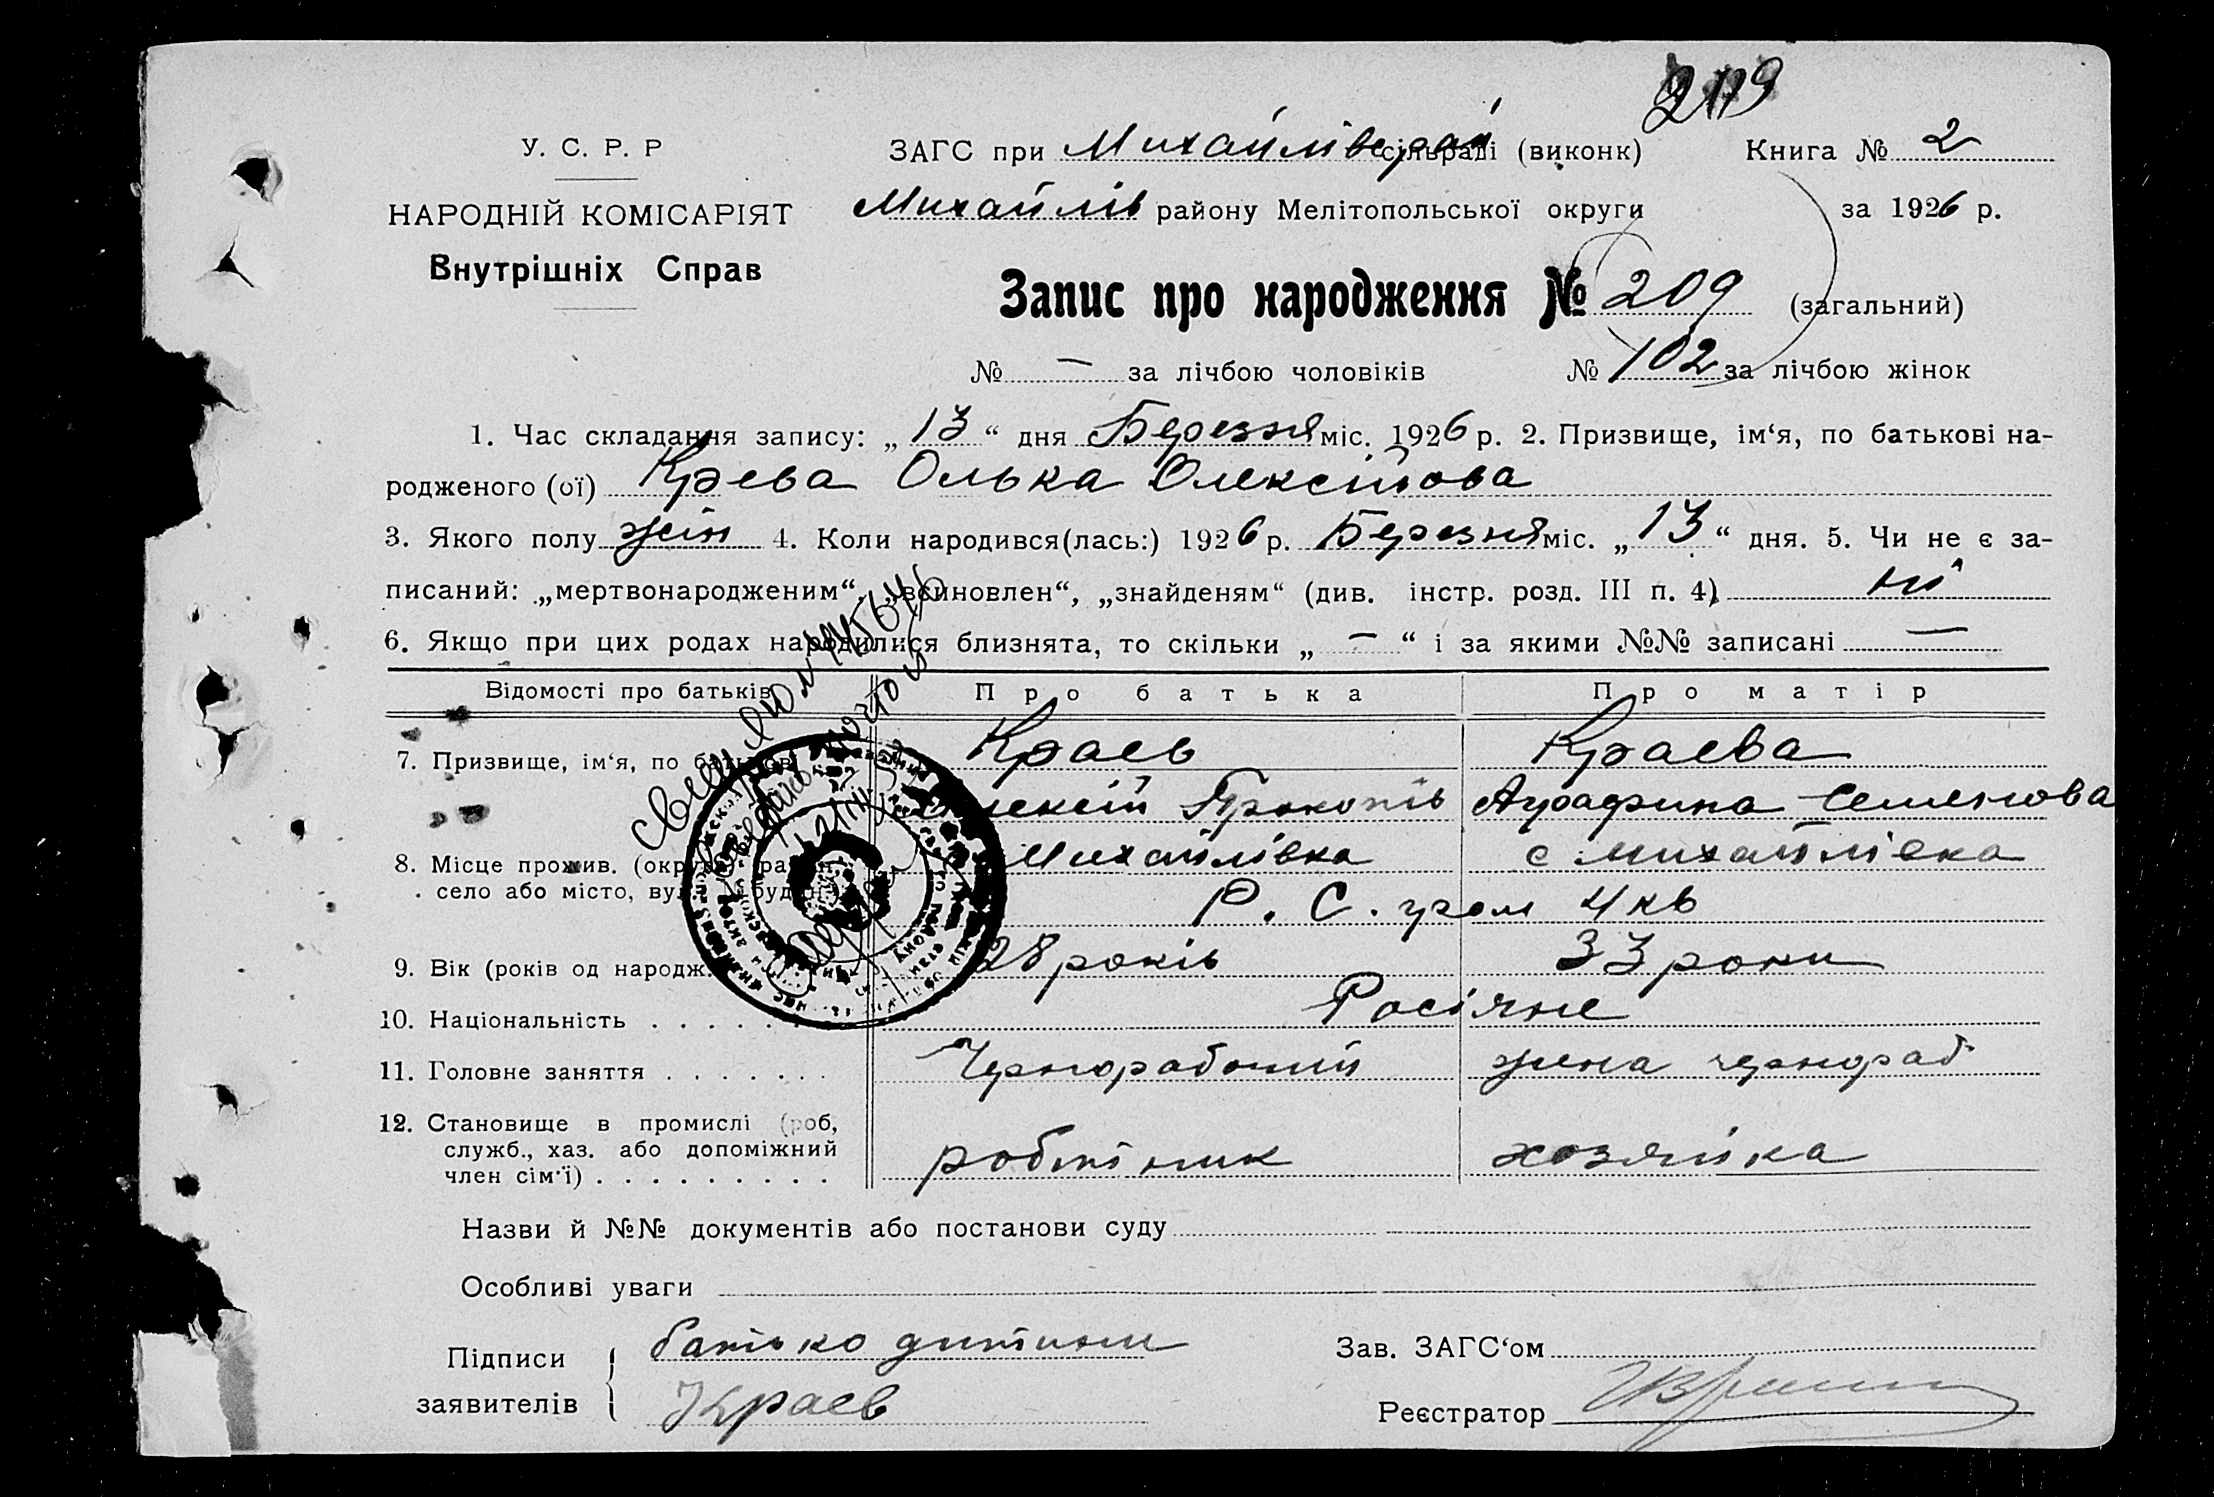 209
У. С. Р. Р
ЗАГС при Михайлів сільраді (виконк) Книга № 2
НАРОДНІЙ КОМІСАРІЯТ
Михайлів району Мелітопольської округи за 1926 р.
Внутрішніх Справ
Запис про народження № 209 (загальний)
№ — за лічбою чоловіків № 102 за лічбою жінок
1. Час складання запису: „13“ дня Березня міс. 1926 р. 2. Призвище, ім‘я, по батькові на-
родженого (ої) Краева Олька Олексійова
3. Якого полу жін 4. Коли народився(лась:) 1926 р. Березня міс. „13“ дня. 5. Чи не є за-
писаний: „мертвонародженим“, „всиновлен“, „знайденям“ (див. інстр. розд. III п. 4) ні
6. Якщо при цих родах народилися близнята, то скільки „—“ і за якими №№ записані —
Відомості про батьків Про батька Про матір
7. Призвище, ім‘я, по батькові Краев Краева
Олексій Прокопів Аграфина Семенова
8. Місце прожив. (округа, район Михайлівка с Михайлівка
село або місто, вул. буд. Р. С. гром 4 кв
9. Вік (років од народж. 28 років 33 роки
10. Національність . . . . . . Росіяне
11. Головне заняття . . . . . . . Чернорабочий жена чернораб
12. Становище в промислі (роб,
служб., хаз. або допоміжний робітник хозяйка
член сім‘ї) . . . . . . . . .
Назви й №№ документів або постанови суду
Особливі уваги
Підписи батько дитини Зав. ЗАГС‘ом
заявителів Краев Реєстратор